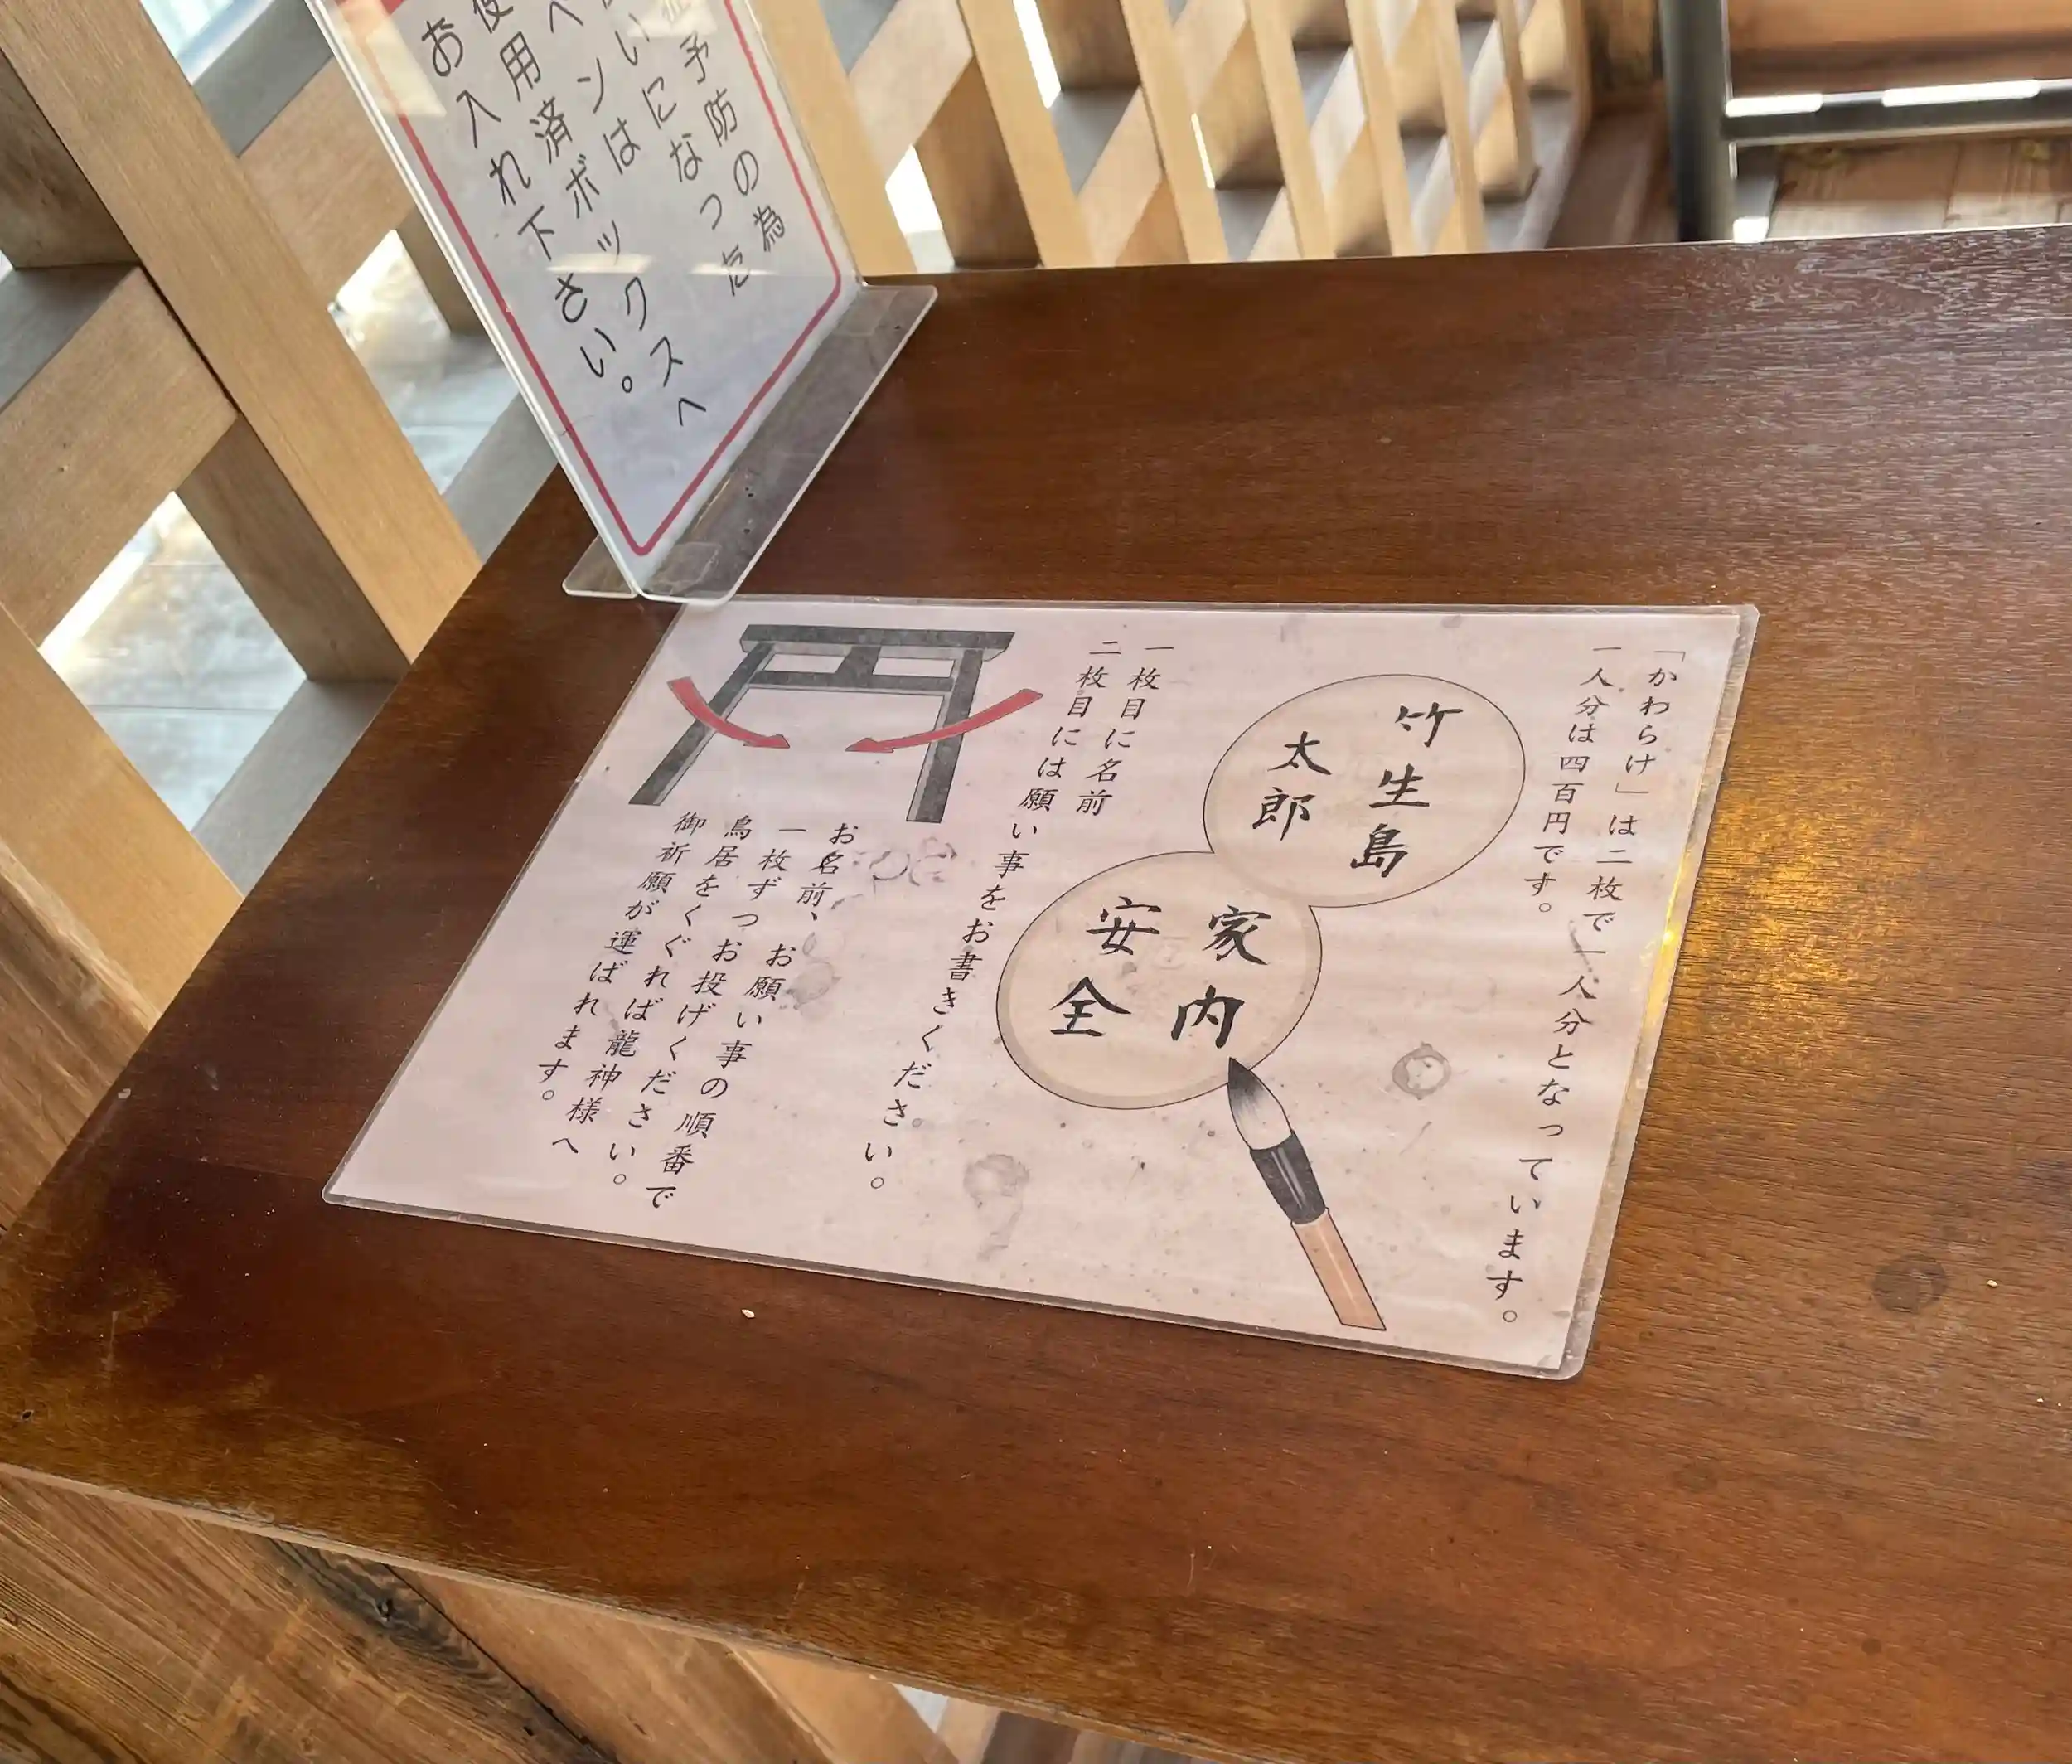 予防の為
いになった
ペンは
使用済ボックスへ
お入れ下さい。
「かわらけ」は二枚で一人分となっています。
一人分は四百円です。
竹生島
太郎
家内
安全
一枚目に名前
二枚目には願い事をお書きください。
お名前、お願い事の順番で
一枚ずつお投げください。
鳥居をくぐれば龍神様へ
御祈願が運ばれます。